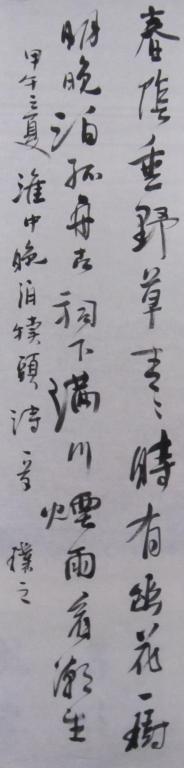 春陰垂野草青々時有幽花一樹
明晚泊孤舟古祠下滿川煙雨看潮生
甲午之夏淮中晚泊犢頭詩一首 樸之